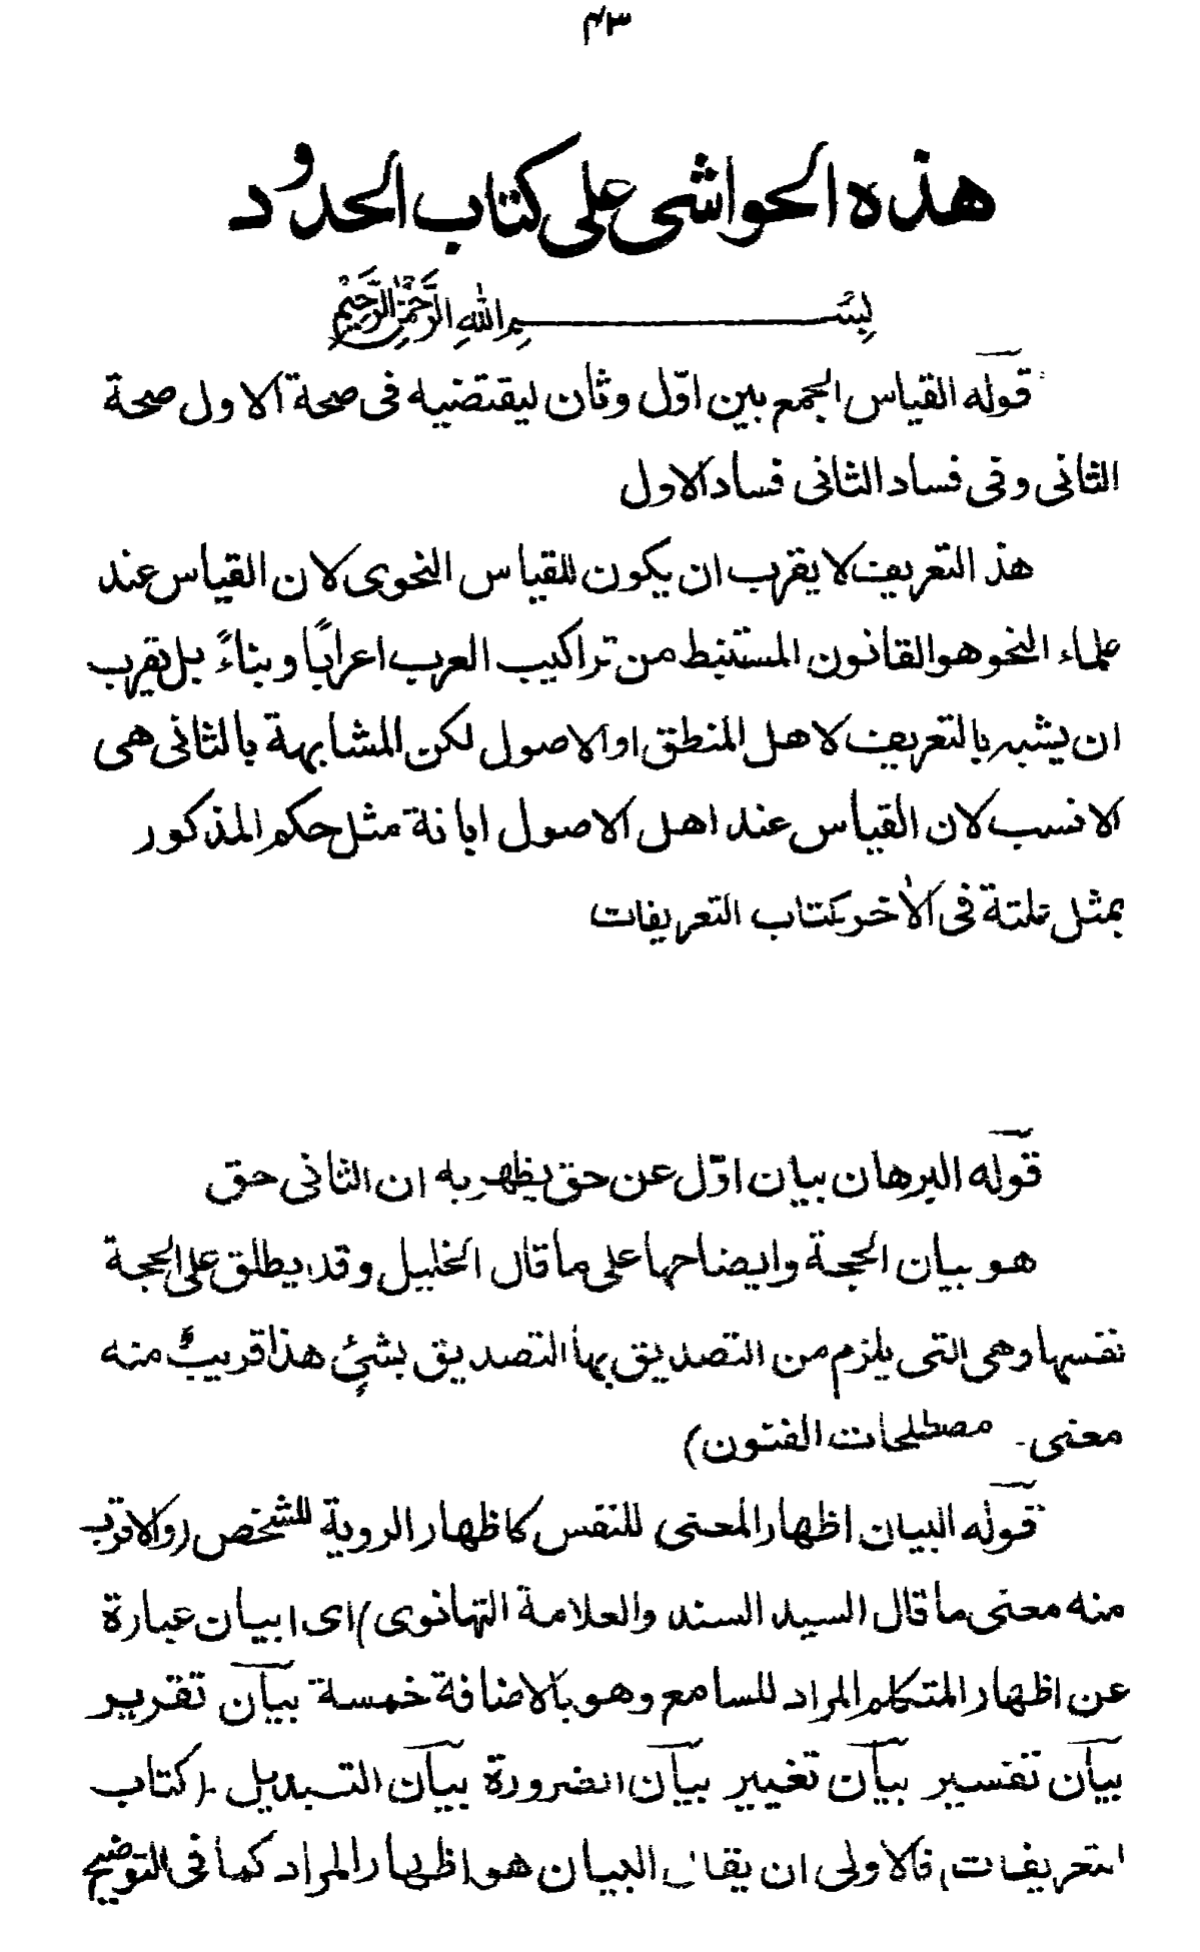 ٤٣
هذه الحواشى على كتاب الحدود
بسم الله الرحمن الرحيم
قوله القياس الجمع بين اوّل وثان ليقتضيه فى صحة الاول صحة
الثانى وفى فساد الثانى فساد الاول
هذ التعريف لا يقرب ان يكون للقياس النحوى لان القياس عند
علماء النحو هو القانون المستنبط من تراكيب العرب اعرابًا وبناءً بل يقرب
ان يشبه بالتعريف لاهل المنطق او الاصول لكن المشابهة بالثانى هى
الانسب لان القياس عند اهل الاصول ابانة مثل حكم المذكور
بمثل علتة فى الاٰخر كتاب التعريفات
قوله البرهان بيان اوّل عن حق يظهر به ان الثانى حق
هو بيان الحجة وايضاحها على ما قال الخليل وقد يطلق على الحجة
نفسها وهى التى يلزم من التصديق بها التصديق بشئٍ هذا قريبٌ منه
معنى۔ مصطلحات الفنون)
قوله البيان اظهار المعنى للنفس كاظهار الروية للشخص (والاقرب
منه معنى ما قال السيد السند والعلامة التهانوى) اى ابيان عبارة
عن اظهار المتكلم المراد للسامع وهو بالاضافة خمسة بيان تقرير
بيان تفسير بيان تغيير بيان الضرورة بيان التبديل۔ (كتاب
التعريفات) فالاولى ان يقال البيان هو اظهار المراد كما فى التوضيح